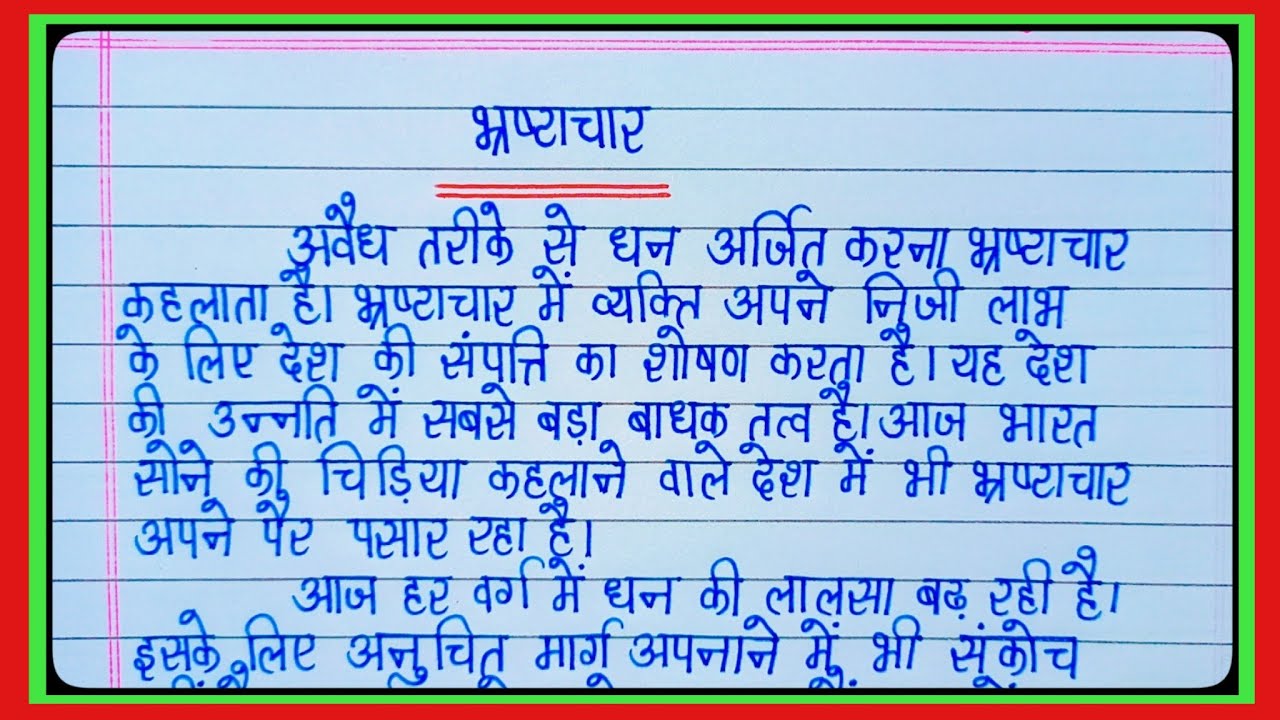 भ्रष्टाचार
अवैध तरीके से धन अर्जित करना भ्रष्टाचार
कहलाता है। भ्रष्टाचार में व्यक्ति अपने निजी लाभ
के लिए देश की संपत्ति का शोषण करता है। यह देश
की उन्नति में सबसे बड़ा बाधक तत्व है। आज भारत
सोने की चिड़िया कहलाने वाले देश में भी भ्रष्टाचार
अपने पैर पसार रहा है।
आज हर वर्ग में धन की लालसा बढ़ रही है।
इसके लिए अनुचित मार्ग अपनाने में भी संकोच